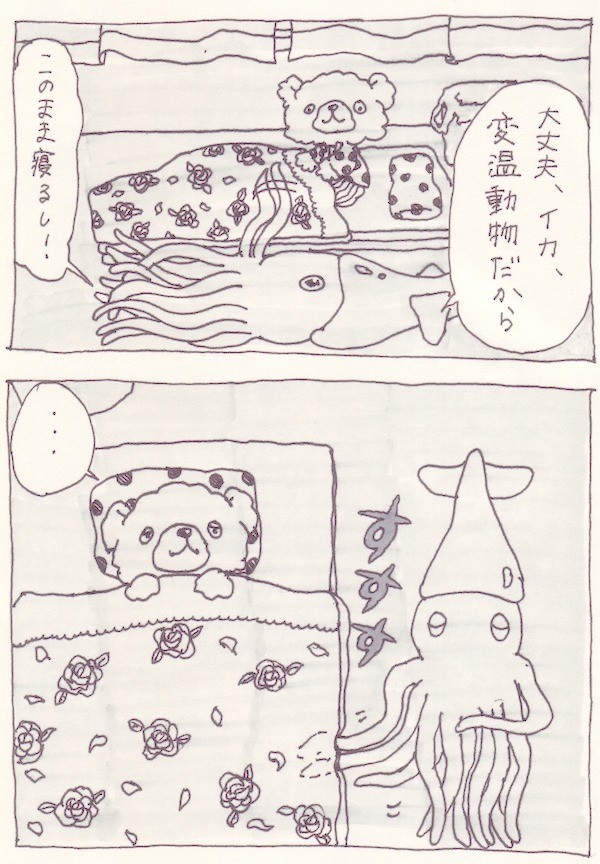 大丈夫、イカ、
変温動物だから
このまま寝るしー!
…
すすす